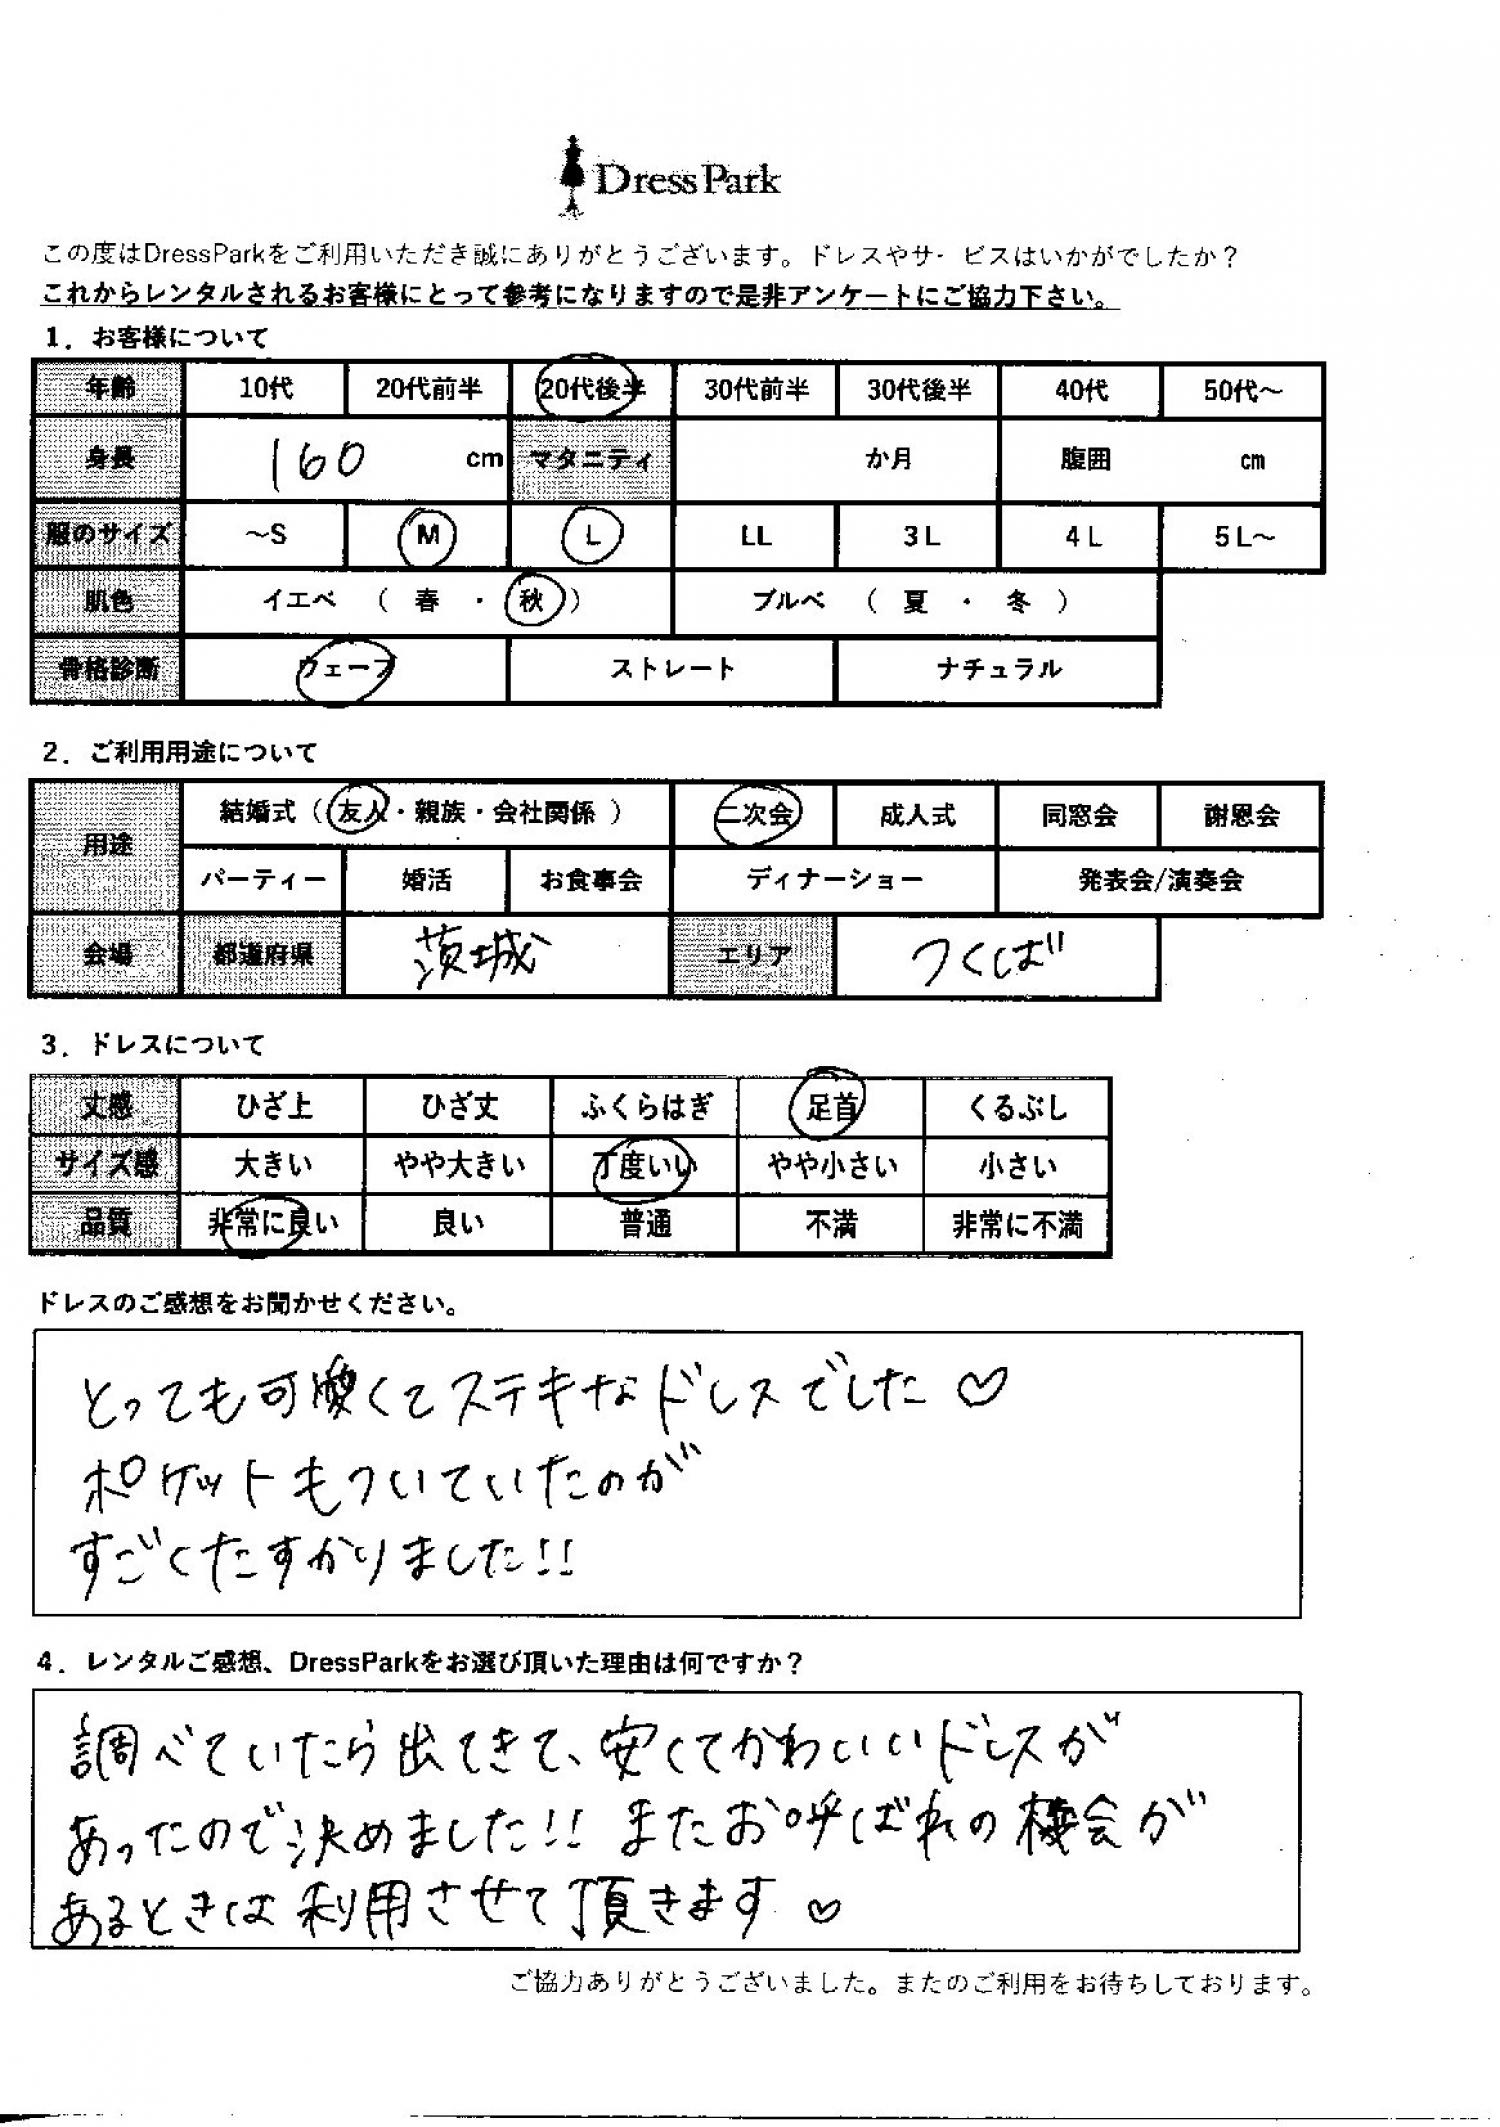 DressPark
この度はDressParkをご利用いただき誠にありがとうございます。ドレスやサービスはいかがでしたか？
これからレンタルされるお客様にとって参考になりますので是非アンケートにご協力下さい。
1．お客様について
年齢 10代 20代前半 20代後半 30代前半 30代後半 40代 50代～
身長 160 cm マタニティ か月 腹囲 cm
服のサイズ ～S M L LL 3L 4L 5L～
肌色 イエベ （ 春 ・ 秋 ） ブルベ （ 夏 ・ 冬 ）
骨格診断 ウェーブ ストレート ナチュラル
2．ご利用用途について
用途 結婚式（ 友人・親族・会社関係 ） 二次会 成人式 同窓会 謝恩会
パーティー 婚活 お食事会 ディナーショー 発表会/演奏会
会場 都道府県 茨城 エリア つくば
3．ドレスについて
丈感 ひざ上 ひざ丈 ふくらはぎ 足首 くるぶし
サイズ感 大きい やや大きい 丁度いい やや小さい 小さい
品質 非常に良い 良い 普通 不満 非常に不満
ドレスのご感想をお聞かせください。
とっても可愛くてステキなドレスでした♡
ポケットもついていたのが
すごくたすかりました!!
4．レンタルご感想、DressParkをお選び頂いた理由は何ですか？
調べていたら出てきて、安くてかわいいドレスが
あったので決めました!! またお呼ばれの機会が
あるときは利用させて頂きます♡
ご協力ありがとうございました。またのご利用をお待ちしております。